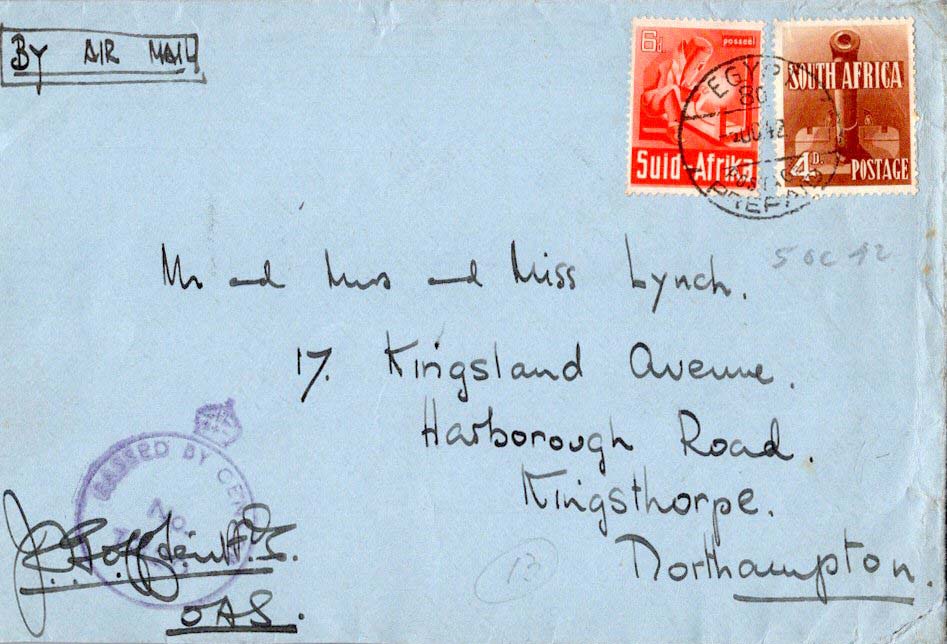 By AIR MAIL
6d. posseël
Suid-Afrika
SOUTH AFRICA
4D. POSTAGE
EGYPT
80
OC 42
PREPAID
5 OC 42
Mr and Mrs and Miss Lynch.
17. Kingsland Avenue.
Harborough Road.
Kingsthorpe.
Northampton.
PASSED BY CEN
No
OAS.
13